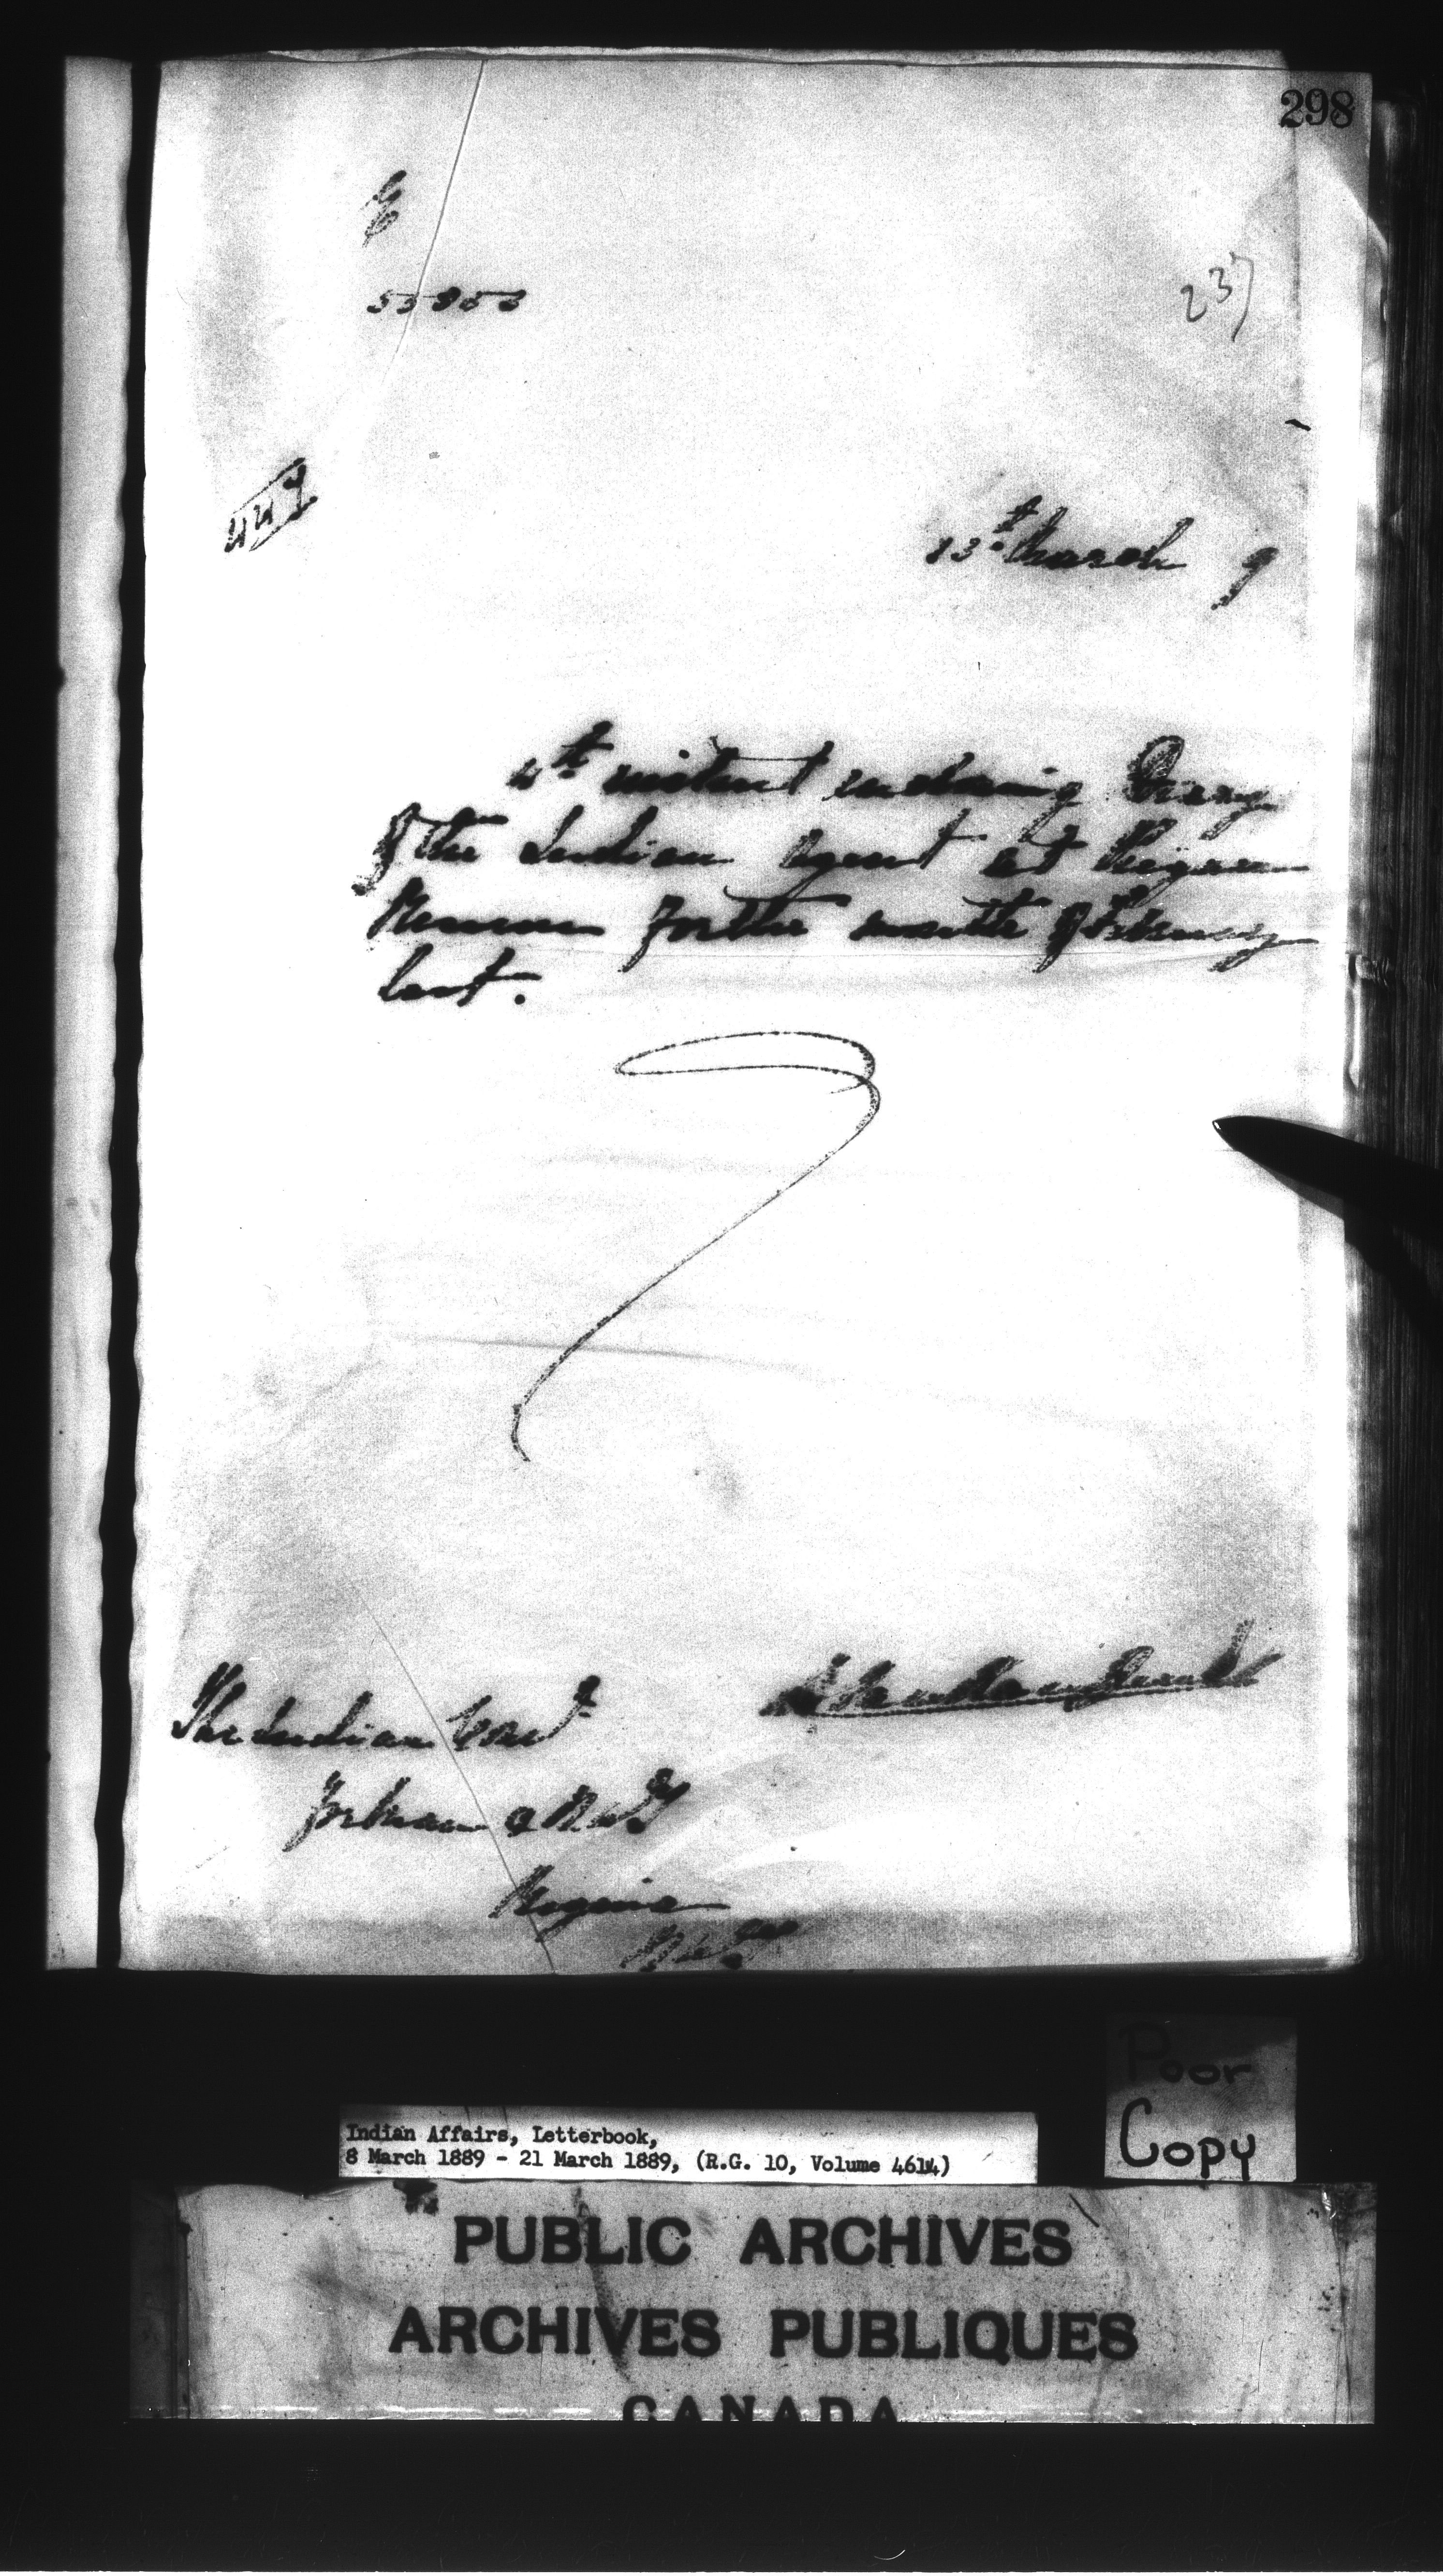 298
237
13th March 9
4th instant enclosing Diary
of the Indian Agent at Peigan
Reserve for the month of February
last.
The Indian Comr
for Man & N.W.T.
Regina
N.W.T.
Poor
Copy
Indian Affairs, Letterbook,
8 March 1889 - 21 March 1889, (R.G. 10, Volume 4614)
PUBLIC ARCHIVES
ARCHIVES PUBLIQUES
CANADA